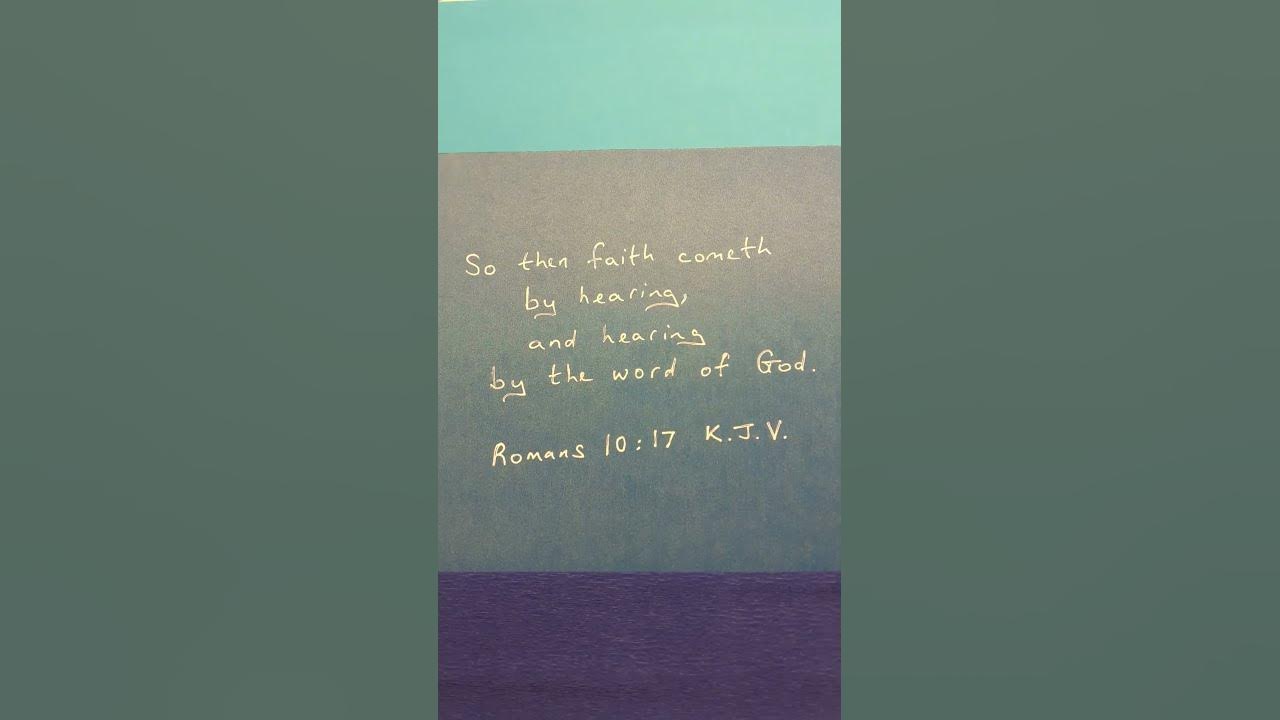 So then faith cometh
by hearing,
and hearing
by the word of God.
Romans 10:17 K.J.V.